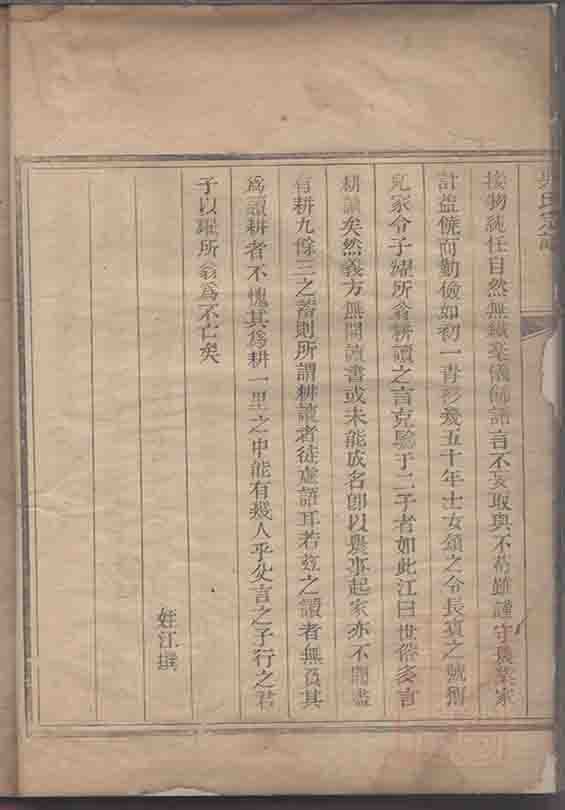 吳氏宗譜
接物純任自然無纖毫儀飾語言不妄取與不苟雖謹守農業家
計益饒而勤儉如初一青衫幾五十年士女頌之令長賓之號稱
兒家令子耀所翁耕讀之言克驗于二子者如此江曰世俗多言
耕讀矣然義方無聞讀書或未能成名卽以農事起家亦不聞盡
有耕九餘三之蓄則所謂耕讀者徒虛語耳若茲之讀者無負其
為讀耕者不愧其為耕一里之中能有幾人乎父言之子行之君
子以耀所翁為不亡矣
姪江撰